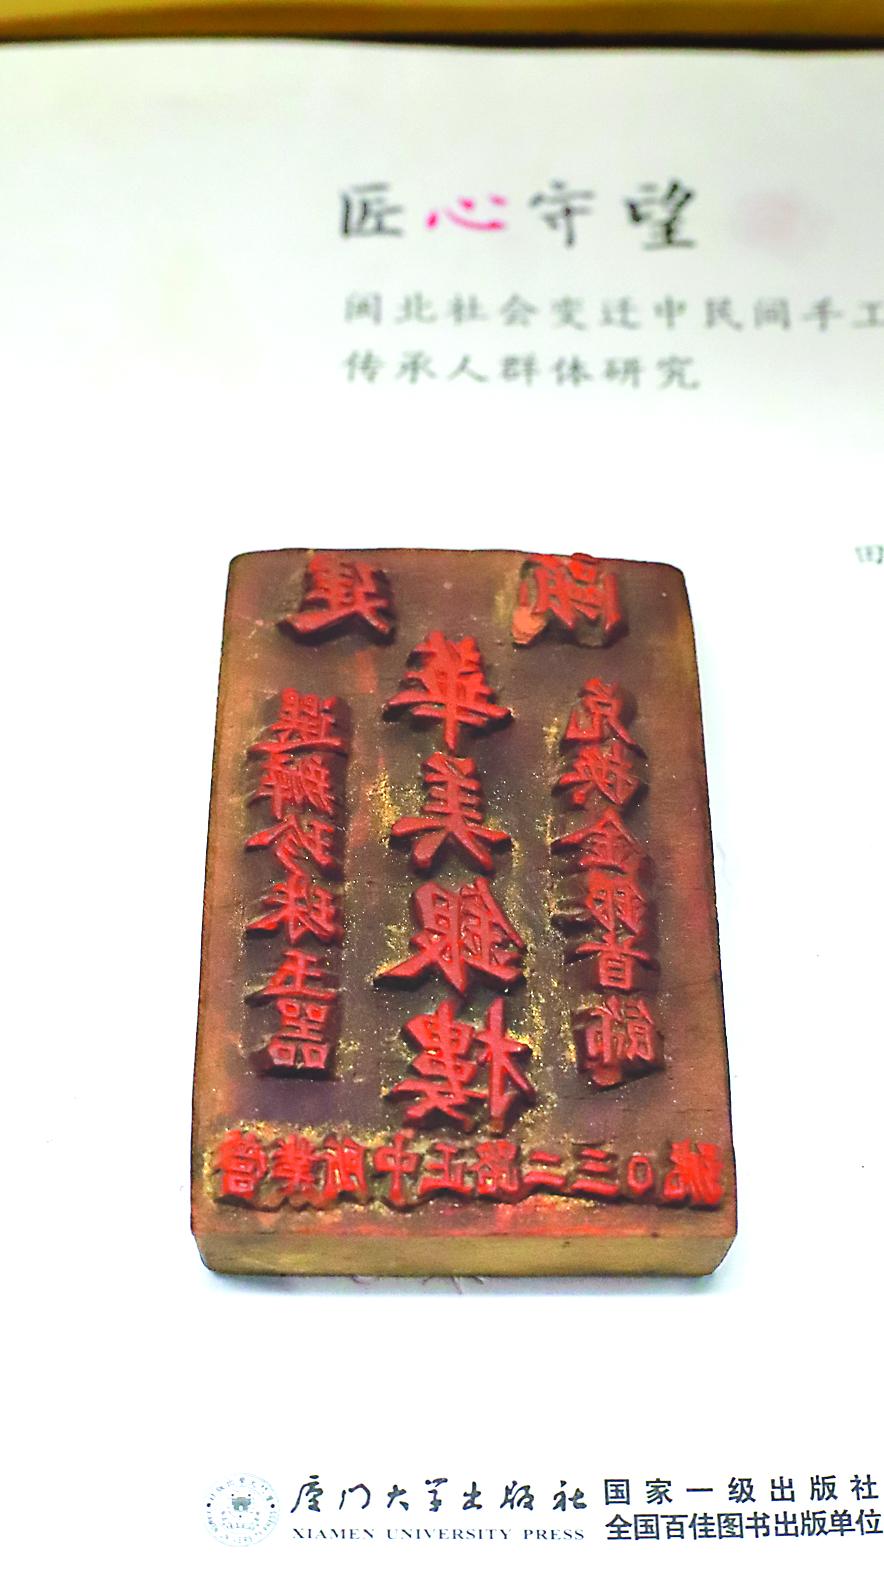 匠心守望
闽北社会变迁中民间手工
传承人群体研究
田
建甌
選辦珍珠玉器
華美銀樓
兌換金銀首飾
營業所中正路二三〇號
厦门大学出版社
XIAMEN UNIVERSITY PRESS
国家一级出版社
全国百佳图书出版单位